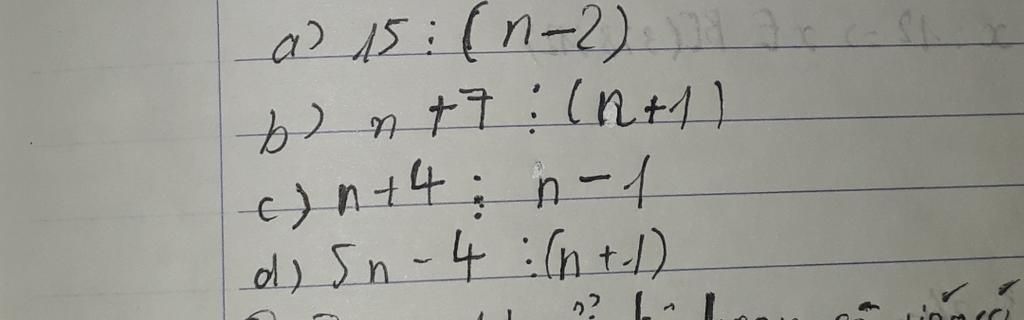 a) 15 ⋮ (n-2)
b) n+7 ⋮ (n+1)
c) n+4 ⋮ n-1
d) 5n-4 ⋮ (n+1)